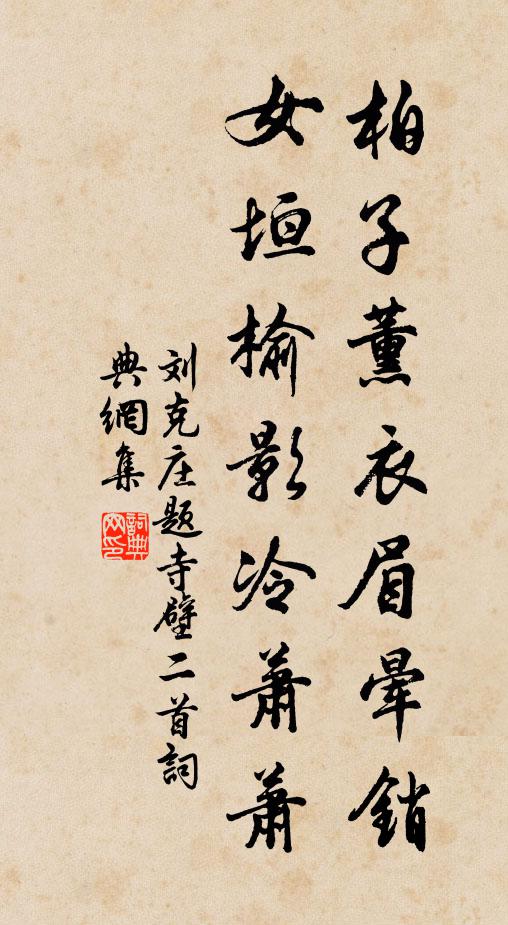 柏子薰衣眉暈銷
女垣榆影冷蕭蕭
刘克庄题寺壁二首詞
典網集
詞典
网印